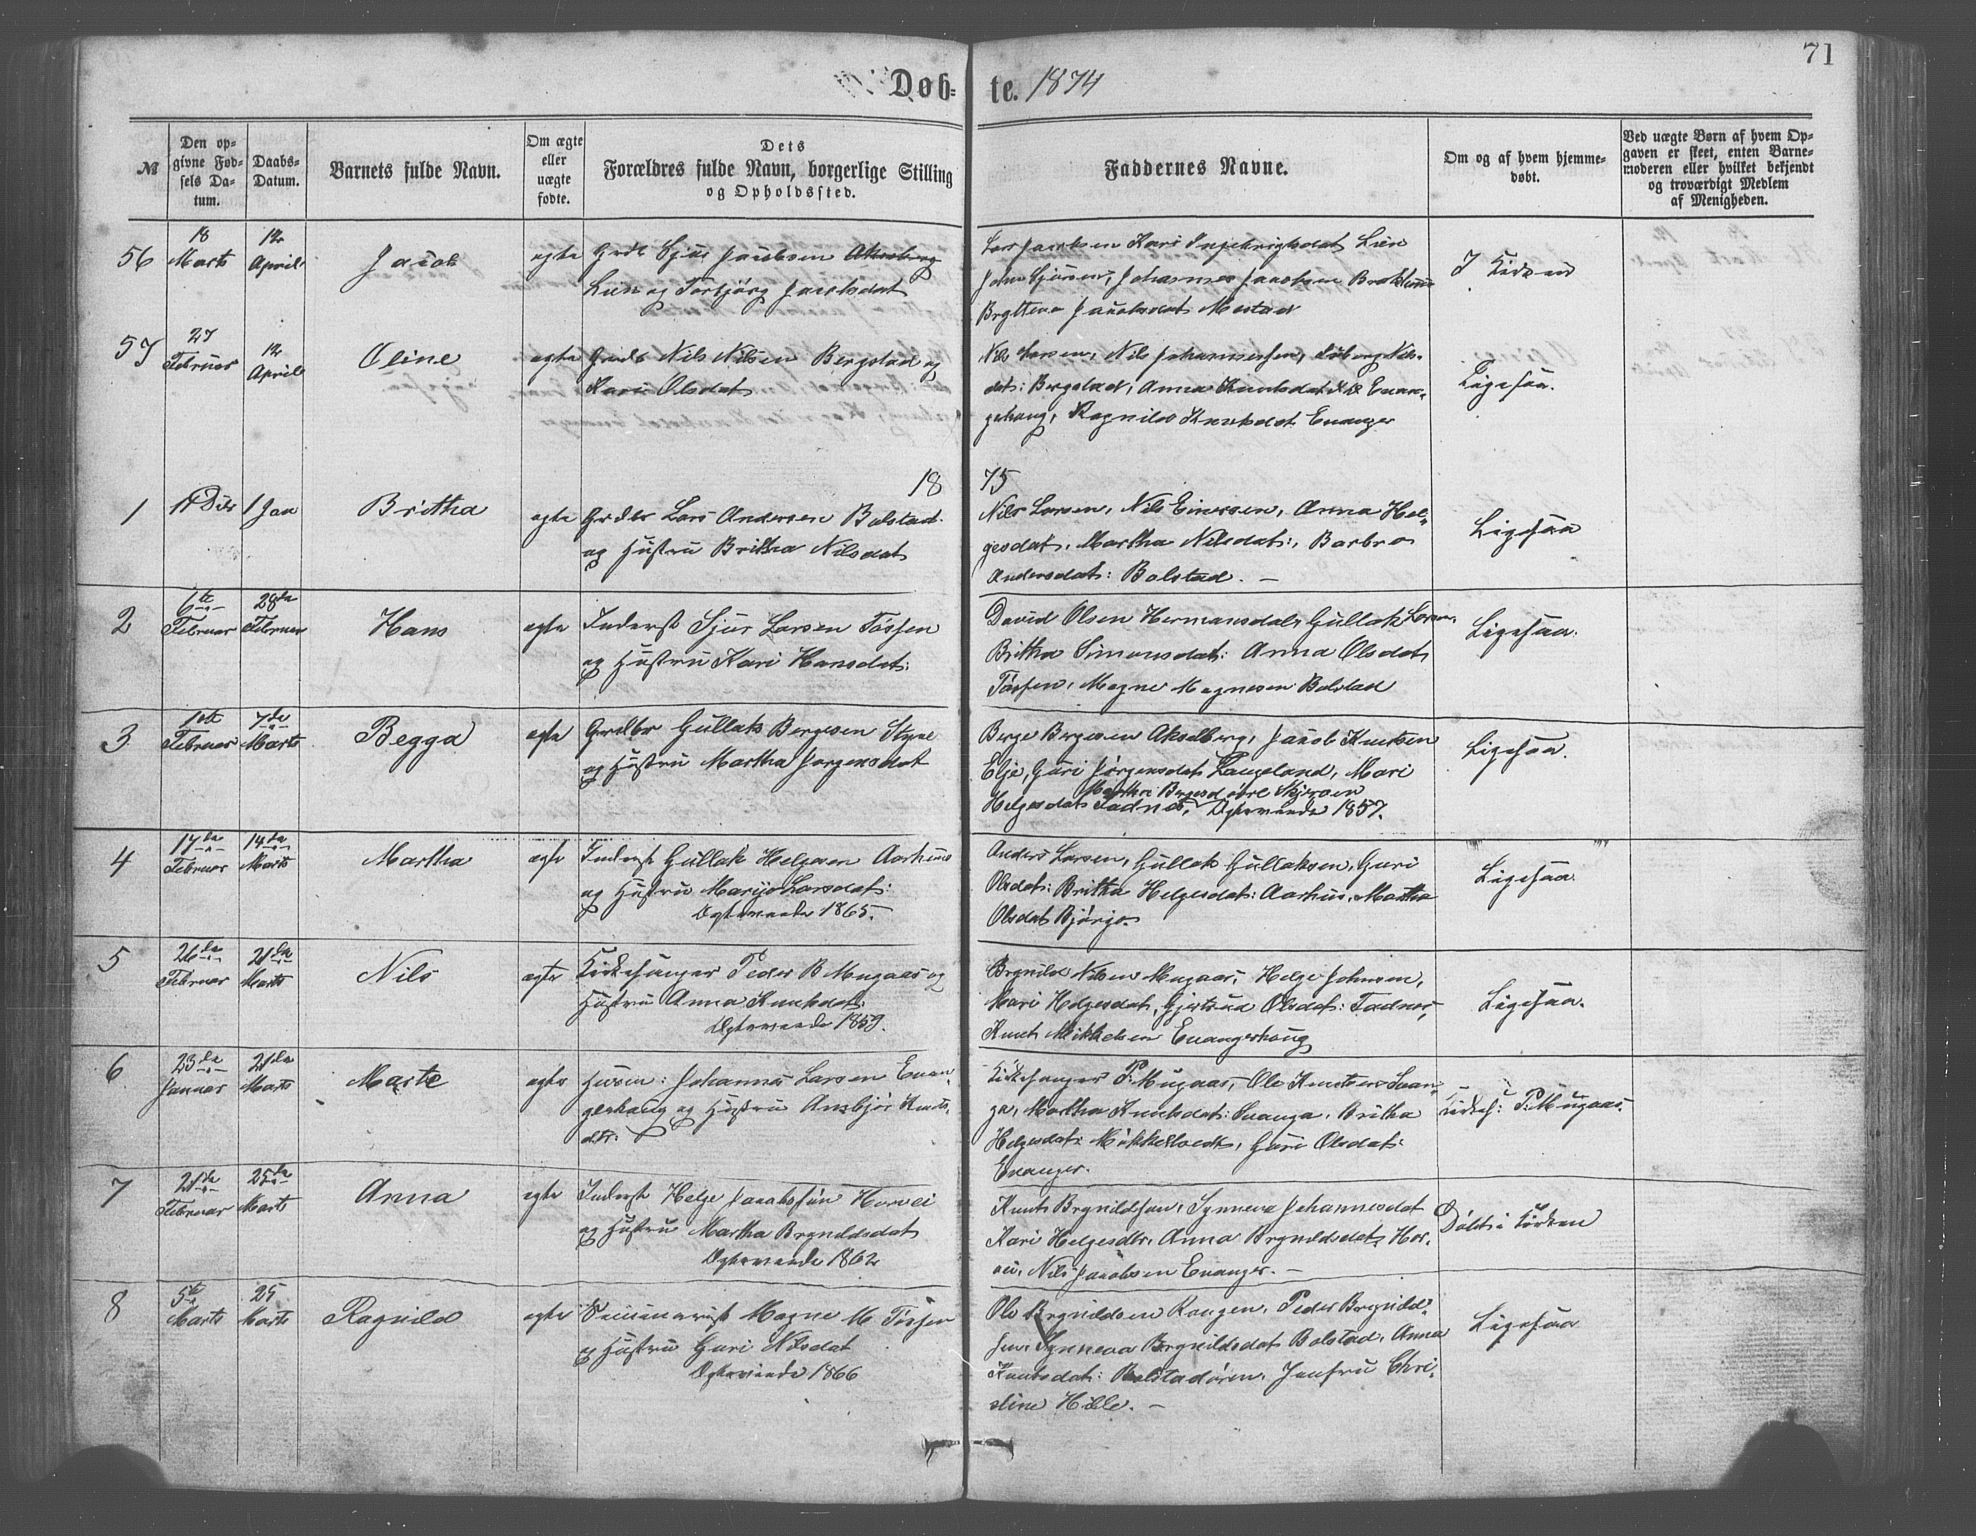 71
Døb= te. 1874
№
Den op-
givne Fød-
sels Da-
tum.
Daabs-
Datum.
Barnets fulde Navn.
Om ægte
eller
uægte
fødte.
Dets
Forældres fulde Navn, borgerlige Stilling
og Opholdssted.
Faddernes Navne.
Om og af hvem hjemme-
døbt.
Ved uægte Børn af hvem Op-
gaven er skeet, enten Barne-
moderen eller hvilket bekjendt
og troværdigt Medlem
af Menigheden.
56
18
Marts
12
April
Jacob
egte
Grdb Sjur Jacobsen
Lien og Torbjørg Jacobsdat
Lars Jacobsen Kari Ingebrigtsdat Lien
John Sjursen, Johannes Jacobsen
Brytteva Jacobsdat Mestad
I Kirken
57
27
Februar
12
April
Oline
egte
Grdb Nils Nilsen Bergstad og
Kari Olsdat
Nils Larsen, Nils Johannessen, Nils-
dat: Bergstad, Anna Knutsdat Evan-
gehaug, Ragnilda Knutsdat Evanger
Ligesaa.
18 75
1
14 Dcbr
1 Jan
Britha
egte
Grdbr Lars Andersen Bolstad
og Hustru Britha Nilsdat
Nils Larsen, Nils Einersen, Anna Hel-
gesdat, Martha Nilsdat:, Barbro
Andersdat: Bolstad. —
Ligesaa
2
6te
Februar
28de
Februar
Hans
egte
Inderst Sjur Larsen Tøssen
og Hustru Kari Hansdat:
David Olsen Hermansdal, Gullak Larsen,
Britha Simonsdat: Anna Olsdat
Tøssen, Magne Magnesen Bolstad
Ligesaa.
3
Februar
7de
Marts
Begga
egte
Grdbr Gullak Bergesen Styve
og Hustru Martha Jørgensdat
Berge Bergesen Akselberg, Jacob Knutsen
Elje, Guri Jørgensdat Langeland, Mari
Martha
Helgesdat Fadnes, Egteviede 1857.
Ligesaa.
4
17de
Februar
14de
Marts
Martha
egte
Inderst Gullak Helgesen Aarhus
og Hustru Marijo Larsdat:
Egteviede 1865.
Anders Larsen, Gullak Gullaksen, Guri
Olsdat: Britha Helgesdat: Aarhus, Martha
Olsdat Bjørgo
Ligesaa
5
26de
Februar
21de
Marts
Nils
egte
Kirkesanger Peder B Mugaas og
Hustru Anna Knutsdat:
Egteviede 1859.
Brynild Nilsen Mugaas, Helge Johnsen,
Mari Helgesdat, Gjertrud Olsdat: Fadnes,
Knut Mikkelsen Evangerhaug
Ligesaa.
6
23de
Januar
21de
Marts
Marte
egte
Husm: Johannes Larsen Evan-
gerhaug og Hustru Ansbjør Knuts-
dtr.
Kirkesanger P. Mugaas, Ole Knutsen Svan-
ga, Martha Knutsdat: Svanga, Britha
Helgesdat: Mikkeltvedt, Guri Olsdat:
Evanger.
Kirkes: P: Mugaas.
7
21de
Februar
25de
Marts
Anna
egte
Inderst Helge Jacobsen Horvei
og Hustru Martha Brynildsdat
Egteviede 1862
Knut Brynildsen, Synneva Johannesdat
Kari Helgesdtr. Anna Brynildsdat, Hor-
vei, Nils Jacobsen Evanger. —
Døbt i Kirken
8
5te
Marts
25
Marts
Ragnild
egte
Seminarist Magne M Tøssen
og Hustru Guri Nilsdat
Egteviede 1866
Ole Brynildsen Rongen, Peder Brynild-
sen, Synneva Brynildsdat Bolstad, Anna
Knutsdat: Bolstadøren, Jomfru Chri-
stine Hille. —
Ligesaa